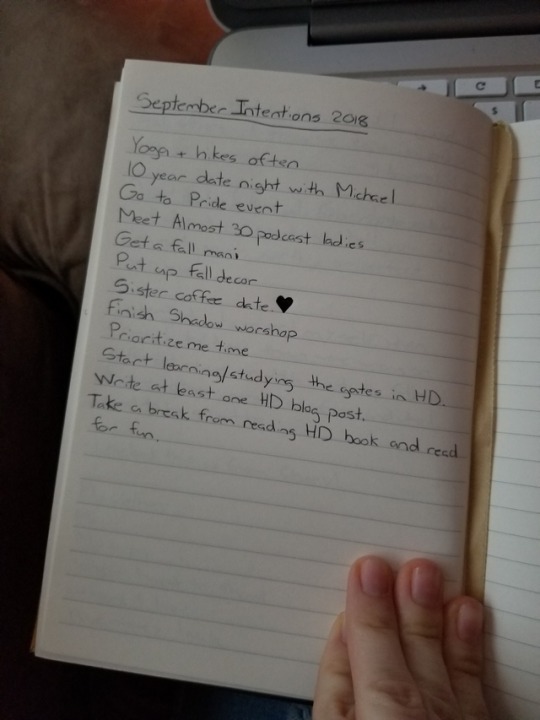 September Intentions 2018
Yoga + hikes often
10 year date night with Michael
Go to Pride event
Meet Almost 30 podcast ladies
Get a fall mani
Put up fall decor
Sister coffee date ♥
Finish Shadow worshop
Prioritize me time
Start learning/studying the gates in HD.
Write at least one HD blog post.
Take a break from reading HD book and read
for fun.
C
$